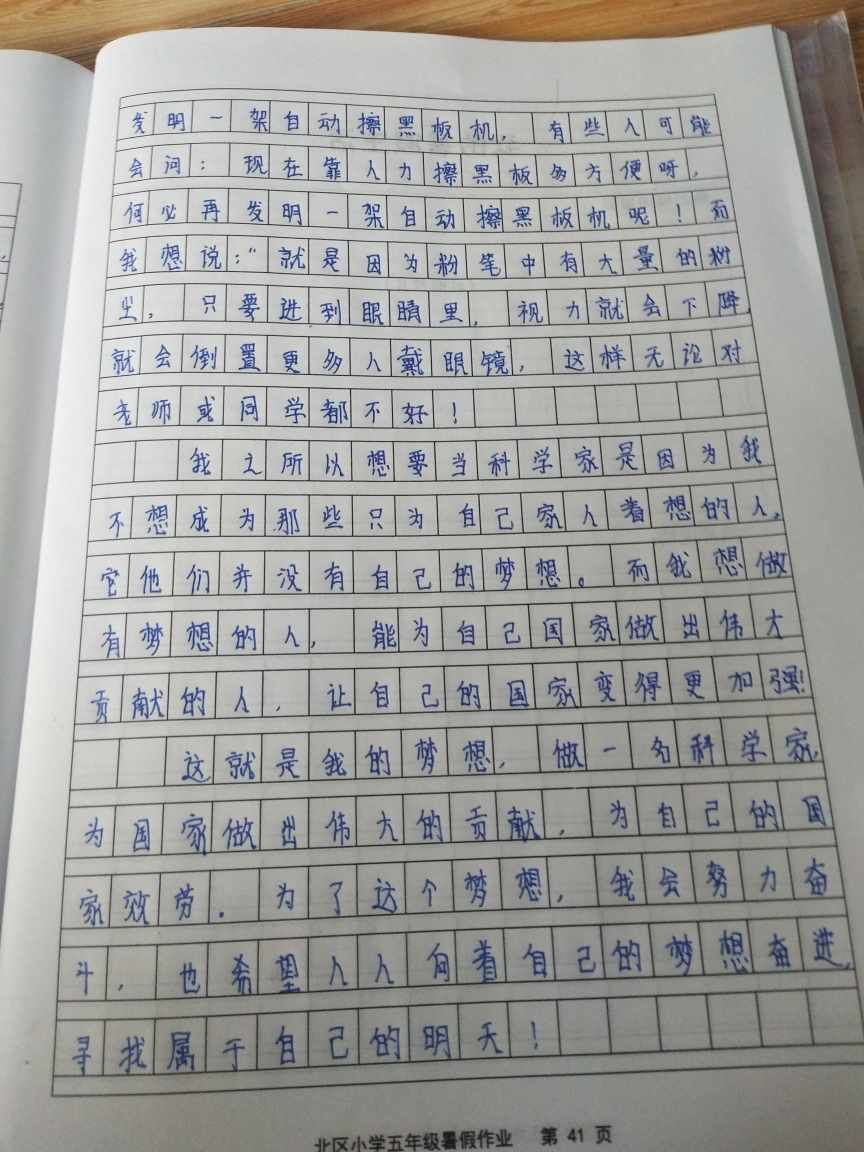 发明一架自动擦黑板机，有些人可能
会问：现在靠人力擦黑板多方便呀，
何必再发明一架自动擦黑板机呢！而
我想说：“就是因为粉笔中有大量的粉
尘，只要进到眼睛里，视力就会下降，
就会倒置更多人戴眼镜，这样无论对
老师或同学都不好！
我之所以想要当科学家是因为我
不想成为那些只为自己家人着想的人，
它他们并没有自己的梦想。而我想做
有梦想的人，能为自己国家做出伟大
贡献的人，让自己的国家变得更加强！
这就是我的梦想，做一名科学家，
为国家做出伟大的贡献，为自己的国
家效劳。为了这个梦想，我会努力奋
斗，也希望人人向着自己的梦想奋进，
寻找属于自己的明天！
北区小学五年级暑假作业 第 41 页